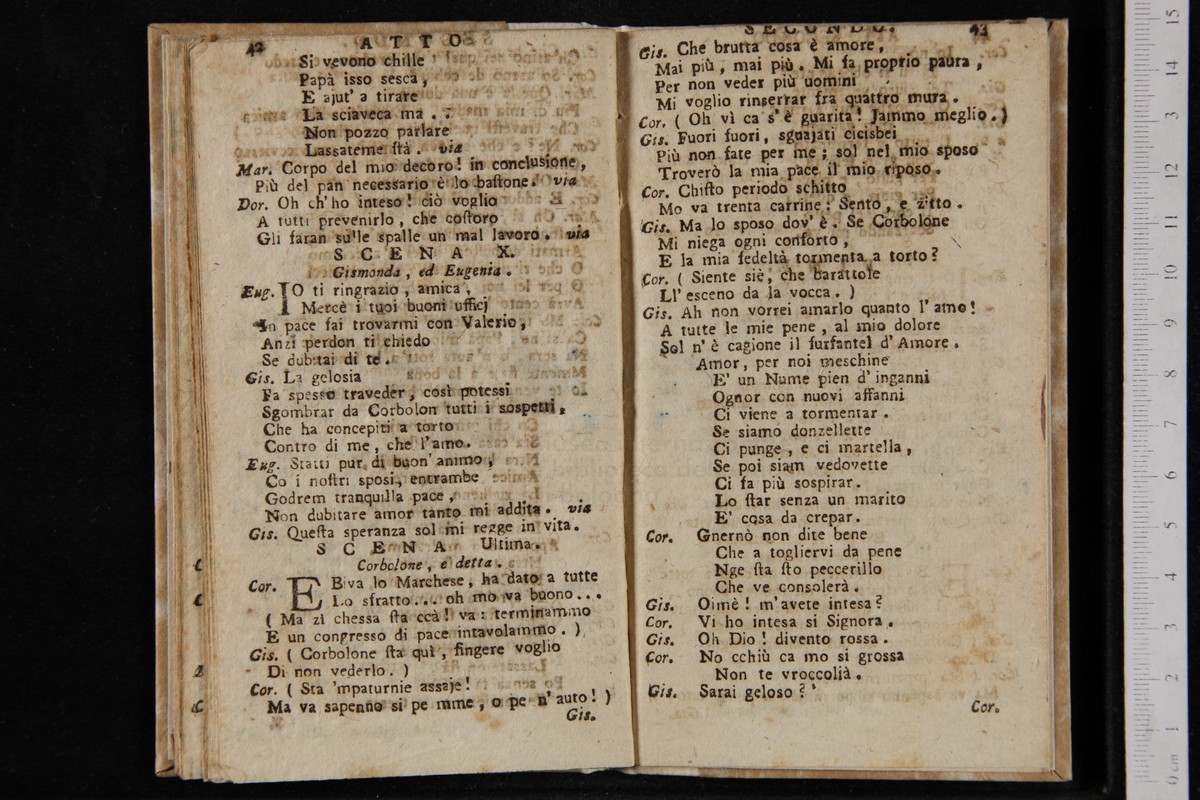 42
A T T O
Si vevono chille
Papà isso sesca,
E ajut' a tirare
La sciaveca ma . .
Non pozzo parlare
Lassateme ſtà . via
Mar. Corpo del mio decoro! in conclusione,
Più del pan necessario è lo baſtone. via
Dor. Oh ch' ho inteso! ciò voglio
A tutti prevenirlo, che coſtoro
Gli faran sulle spalle un mal lavoro. via
S C E N A X.
Gismonda, ed Eugenia.
Eug. IO ti ringrazio, amica,
Mercè i tuoi buoni uffícj
In pace fai trovarmi con Valerio,
Anzi perdon ti chiedo
Se dubitai di te.
Gis. La gelosia
Fa spesso traveder, così potessi
Sgombrar da Corbolon tutti i sospetti,
Che ha concepiti a torto
Contro di me, che l'amo.
Eug. Statti pur di buon' animo,
Co i noſtri sposi, entrambe
Godrem tranquilla pace,
Non dubitare amor tanto mi addita. via
Gis. Queſta speranza sol mi regge in vita.
S C E N A Ultima.
Corbolone, e detta.
Cor. EBiva lo Marchese, ha dato a tutte
Lo sfratto... oh mo va buono...
( Ma zì chessa ſta ccà! va: terminammo
E un congresso di pace intavolammo. )
Gis. ( Corbolone ſta quì, fingere voglio
Di non vederlo. )
Cor. ( Sta 'mpaturnie assaje!
Ma va sapenno si pe mme, o pe n' auto! )
Gis.
S E C O N D O.
43
Gis. Che brutta cosa è amore,
Mai più, mai più. Mi fa proprio paura,
Per non veder più uomini
Mi voglio rinserrar fra quattro mura.
Cor. ( Oh vì ca s' è guarita! Jammo meglio. )
Gis. Fuori fuori, sguajati cicisbei
Più non fate per me; sol nel mio sposo
Troverò la mia pace il mio riposo.
Cor. Chiſto periodo schitto
Mo va trenta carrine: Sento, e zitto.
Gis. Ma lo sposo dov' è. Se Corbolone
Mi niega ogni conforto,
E la mia fedeltà tormenta a torto?
Cor. ( Siente siè, che barattole
Ll' esceno da la vocca. )
Gis. Ah non vorrei amarlo quanto l' amo!
A tutte le mie pene, al mio dolore
Sol n' è cagione il furfantel d' Amore.
Amor, per noi meschine
E' un Nume pien d' inganni
Ognor con nuovi affanni
Ci viene a tormentar.
Se siamo donzellette
Ci punge, e ci martella,
Se poi siam vedovette
Ci fa più sospirar.
Lo ſtar senza un marito
E' cosa da crepar.
Cor. Gnernò non dite bene
Che a togliervi da pene
Nge ſta ſto peccerillo
Che ve consolerà.
Gis. Oimè! m'avete intesa?
Cor. Vi ho intesa si Signora.
Gis. Oh Dio! divento rossa.
Cor. No cchiù ca mo si grossa
Non te vroccolià.
Gis. Sarai geloso?
Cor.